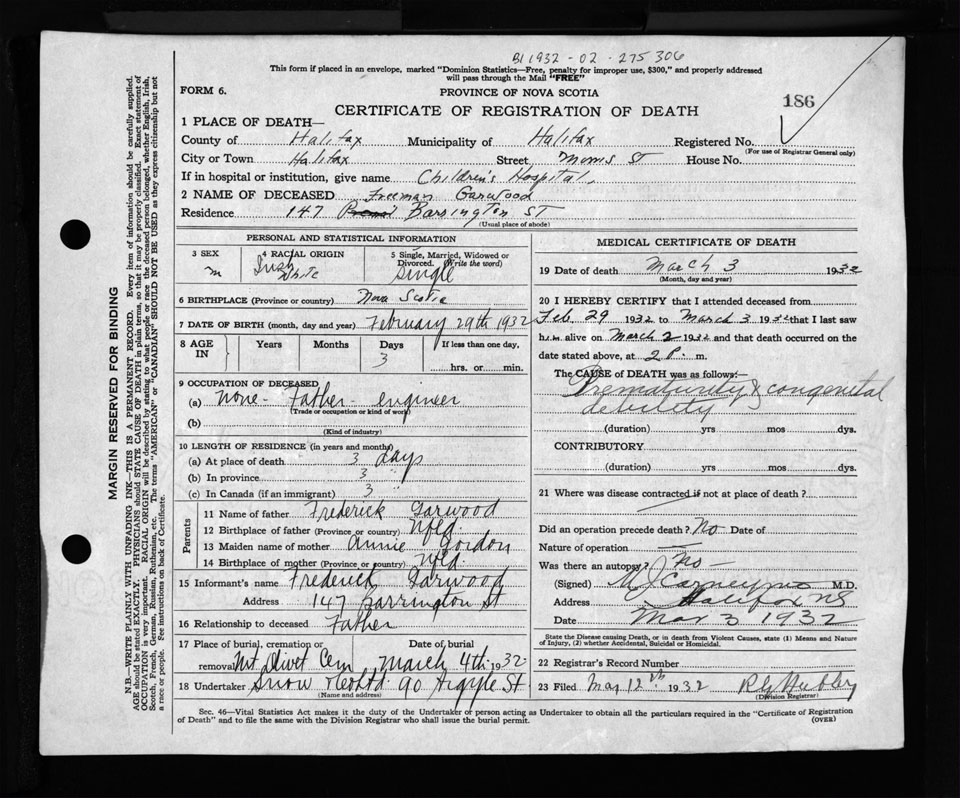 B1 1932 - 02 - 275 306
This form if placed in an envelope, marked "Dominion Statistics—Free, penalty for improper use, $300," and properly addressed
will pass through the Mail "FREE"
FORM 6.
PROVINCE OF NOVA SCOTIA
CERTIFICATE OF REGISTRATION OF DEATH
186
1 PLACE OF DEATH—
County of Halifax Municipality of Halifax Registered No.
(For use of Registrar General only)
City or Town Halifax Street, Morris St House No.
If in hospital or institution, give name Children's Hospital.
2 NAME OF DECEASED Freeman Garwood
Residence 147 Barrington ST
(Usual place of abode)
PERSONAL AND STATISTICAL INFORMATION
3 SEX
m
4 RACIAL ORIGIN
Irish
White
5 Single, Married, Widowed or
Divorced. (Write the word)
single
6 BIRTHPLACE (Province or country) Nova Scotia
7 DATE OF BIRTH (month, day and year) February 29th 1932
8 AGE
IN
Years
Months
Days
3
If less than one day,
hrs. or min.
9 OCCUPATION OF DECEASED
(a) none - Father - engineer
(Trade or occupation or kind of work)
(b)
(Kind of industry)
10 LENGTH OF RESIDENCE (in years and months)
(a) At place of death 3 days
(b) In province 3 "
(c) In Canada (if an immigrant) 3
Parents
11 Name of father Frederick Garwood
12 Birthplace of father (Province or country) Nfld.
13 Maiden name of mother Annie Gordon
14 Birthplace of mother (Province or country) Nfld.
15 Informant's name Frederick Garwood
Address 147 Barrington St
16 Relationship to deceased Father
17 Place of burial, cremation or Date of burial
removal Mt Olivet Cem March 4th 1932
18 Undertaker Snow & Co Ltd 90 Argyle St
(Name and address)
MEDICAL CERTIFICATE OF DEATH
19 Date of death March 3 1932
(Month, day and year)
20 I HEREBY CERTIFY that I attended deceased from
Feb. 29 1932 to March 3 1932 that I last saw
him alive on March 2 1932 and that death occurred on the
date stated above, at 2 P. m.
The CAUSE of DEATH was as follows:—
Prematurity & congenital
debility
(duration) yrs mos dys.
CONTRIBUTORY
(duration) yrs mos dys.
21 Where was disease contracted if not at place of death?
Did an operation precede death? No Date of
Nature of operation
Was there an autopsy? No -
(Signed) Carney M.D.
Address Halifax NS
Date Mar 3 1932
State the Disease causing Death, or in death from Violent Causes, state (1) Means and Nature
of Injury, (2) whether Accidental, Suicidal or Homicidal.
22 Registrar's Record Number
23 Filed Mar 12th 1932
(Division Registrar)
Sec. 46—Vital Statistics Act makes it the duty of the Undertaker or person acting as Undertaker to obtain all the particulars required in the "Certificate of Registration
of Death" and to file the same with the Division Registrar who shall issue the burial permit.
(OVER)
MARGIN RESERVED FOR BINDING
N.B.—WRITE PLAINLY WITH UNFADING INK—THIS IS A PERMANENT RECORD. Every item of information should be carefully supplied.
AGE should be stated EXACTLY. PHYSICIANS should STATE CAUSE OF DEATH in plain terms, so that it may be properly classified. Exact statement of
OCCUPATION is very important. RACIAL ORIGIN will be described by stating to what people or race the deceased person belonged, whether English, Irish,
Scotch, French, German, Russian, Ruthenian, etc. The terms "AMERICAN" or "CANADIAN" SHOULD NOT BE USED as they express citizenship but not
a race or people. See instructions on back of Certificate.